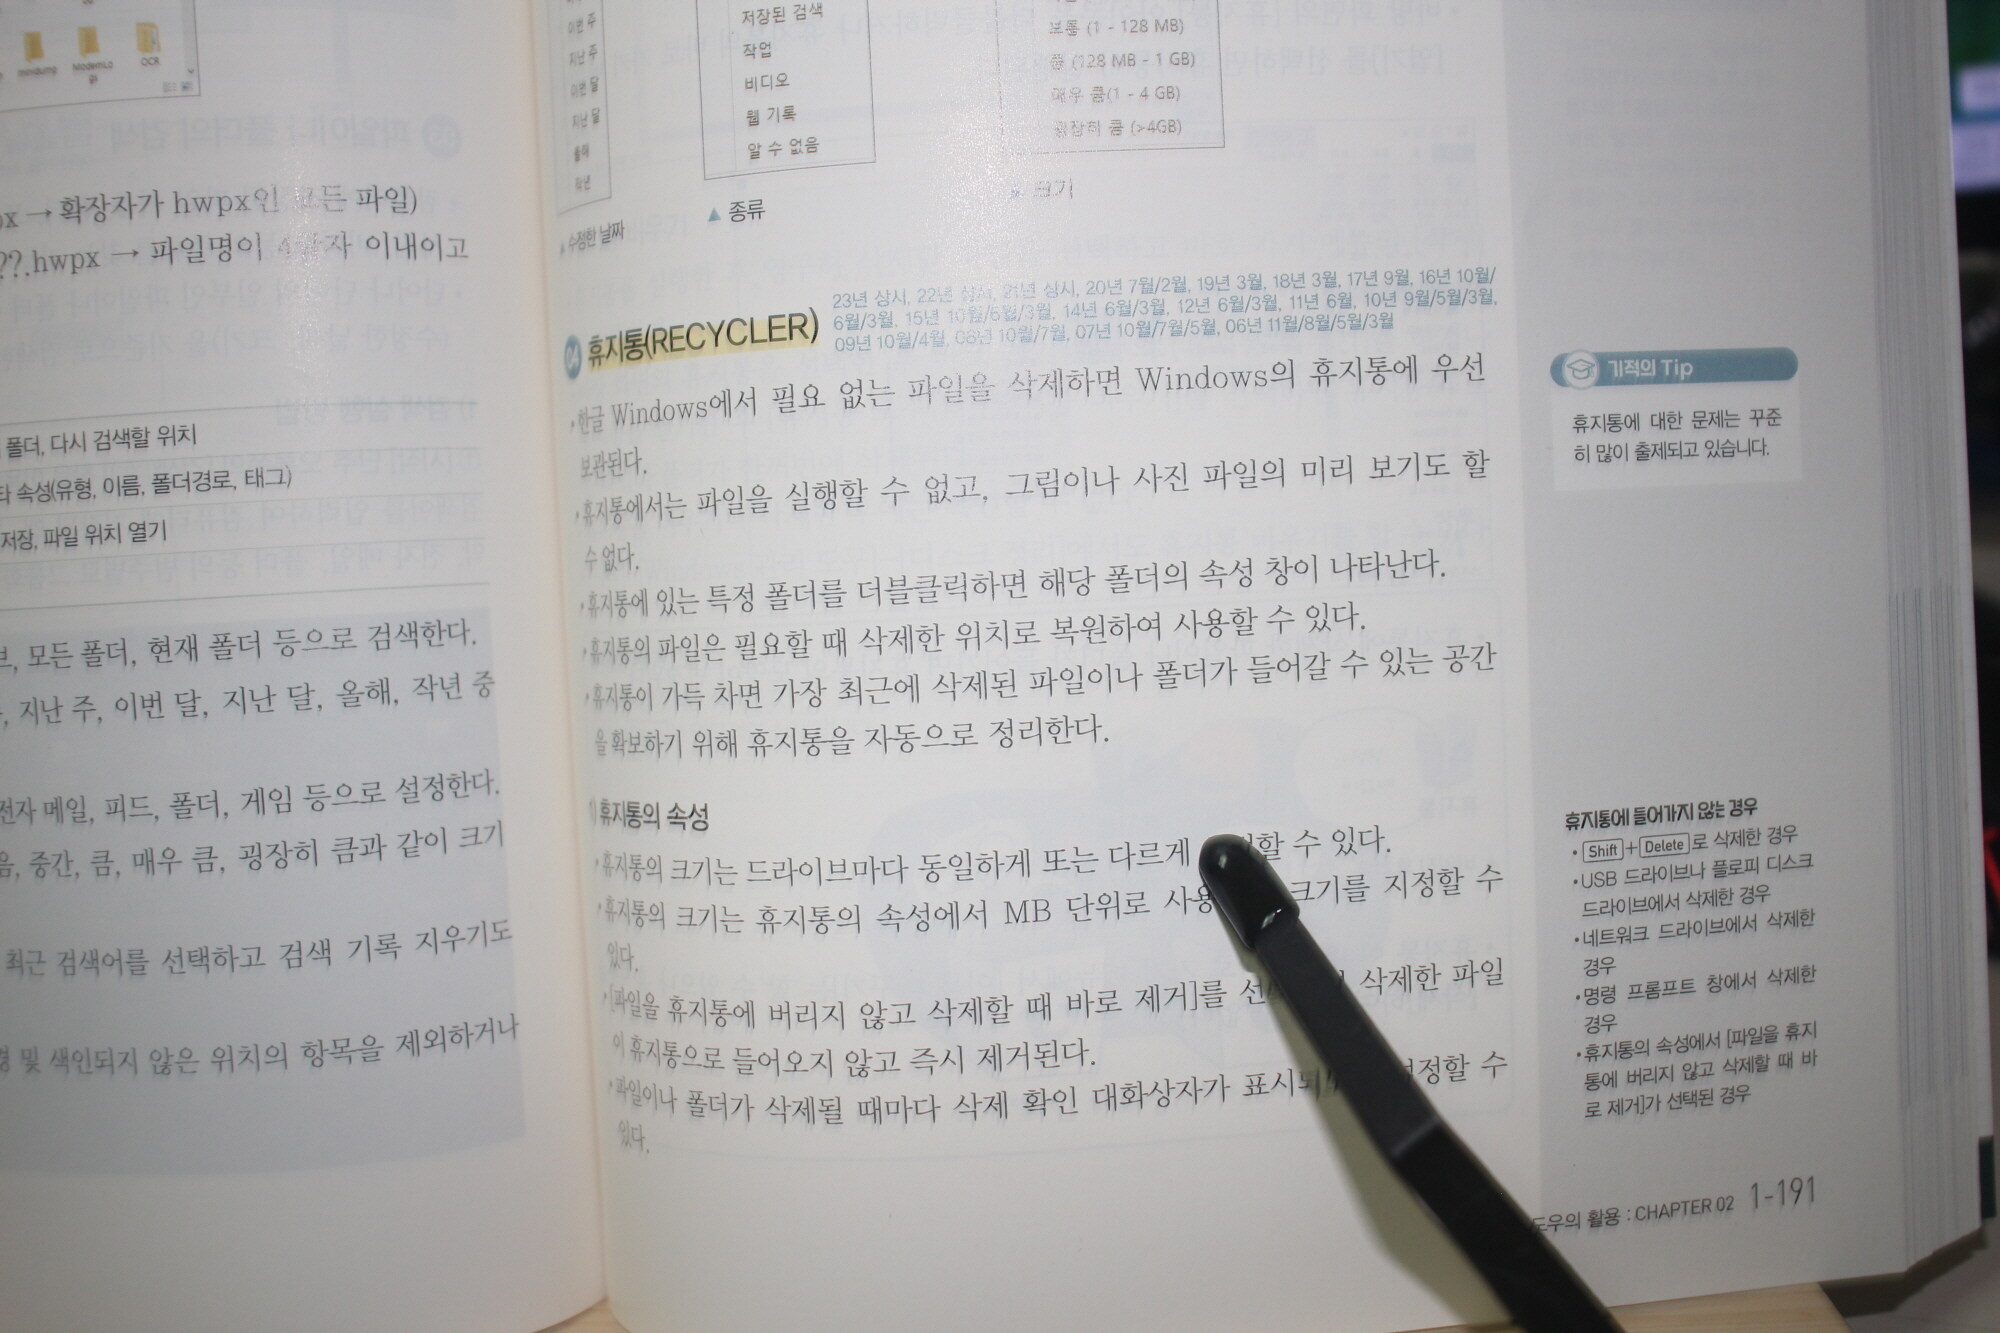 minidump
ModemLo
gs
OCR
px → 확장자가 hwpx인 모든 파일)
??.hwpx → 파일명이 4글자 이내이고
폴더, 다시 검색할 위치
타 속성(유형, 이름, 폴더경로, 태그)
저장, 파일 위치 열기
브, 모든 폴더, 현재 폴더 등으로 검색한다.
, 지난 주, 이번 달, 지난 달, 올해, 작년 중
전자 메일, 피드, 폴더, 게임 등으로 설정한다.
음, 중간, 큼, 매우 큼, 굉장히 큼과 같이 크기
최근 검색어를 선택하고 검색 기록 지우기도
및 색인되지 않은 위치의 항목을 제외하거나
이번 주
지난 주
이번 달
지난 달
올해
작년
▲ 수정한 날짜
저장된 검색
작업
비디오
웹 기록
알 수 없음
▲ 종류
보통 (1 - 128 MB)
큼 (128 MB - 1 GB)
매우 큼(1 - 4 GB)
굉장히 큼 (>4GB)
▲ 크기
04 휴지통(RECYCLER)
23년 상시, 22년 상시, 21년 상시, 20년 7월/2월, 19년 3월, 18년 3월, 17년 9월, 16년 10월/
6월/3월, 15년 10월/6월/3월, 14년 6월/3월, 12년 6월/3월, 11년 6월, 10년 9월/5월/3월,
09년 10월/4월, 08년 10월/7월, 07년 10월/7월/5월, 06년 11월/8월/5월/3월
• 한글 Windows에서 필요 없는 파일을 삭제하면 Windows의 휴지통에 우선
보관된다.
• 휴지통에서는 파일을 실행할 수 없고, 그림이나 사진 파일의 미리 보기도 할
수 없다.
• 휴지통에 있는 특정 폴더를 더블클릭하면 해당 폴더의 속성 창이 나타난다.
• 휴지통의 파일은 필요할 때 삭제한 위치로 복원하여 사용할 수 있다.
• 휴지통이 가득 차면 가장 최근에 삭제된 파일이나 폴더가 들어갈 수 있는 공간
을 확보하기 위해 휴지통을 자동으로 정리한다.
1) 휴지통의 속성
• 휴지통의 크기는 드라이브마다 동일하게 또는 다르게 할 수 있다.
• 휴지통의 크기는 휴지통의 속성에서 MB 단위로 사용 크기를 지정할 수
있다.
• [파일을 휴지통에 버리지 않고 삭제할 때 바로 제거]를 삭제한 파일
이 휴지통으로 들어오지 않고 즉시 제거된다.
• 파일이나 폴더가 삭제될 때마다 삭제 확인 대화상자가 표시되 설정할 수
있다.
기적의 Tip
휴지통에 대한 문제는 꾸준
히 많이 출제되고 있습니다.
휴지통에 들어가지 않는 경우
• Shift + Delete 로 삭제한 경우
• USB 드라이브나 플로피 디스크
드라이브에서 삭제한 경우
• 네트워크 드라이브에서 삭제한
경우
• 명령 프롬프트 창에서 삭제한
경우
• 휴지통의 속성에서 [파일을 휴지
통에 버리지 않고 삭제할 때 바
로 제거]가 선택된 경우
도우의 활용 : CHAPTER 02 1-191